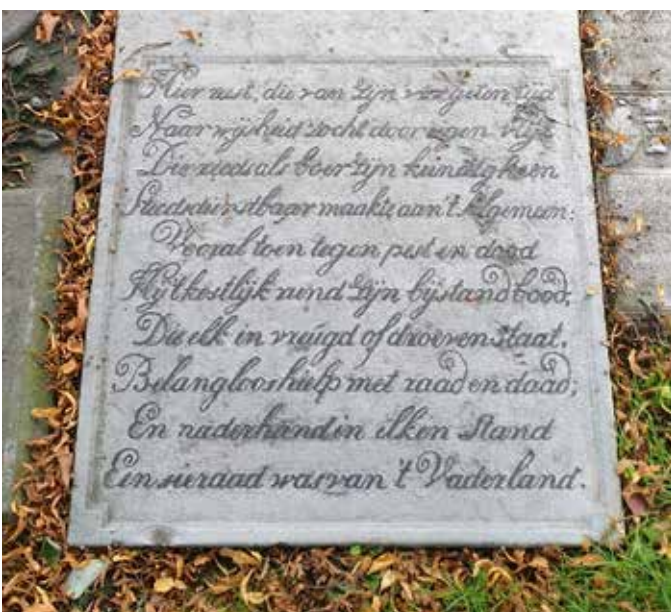 Hier rust, die van zijn vergeten tijd
Naar wijsheid zocht door eigen vlijt
Die reeds als boer zijn kundigheên
Steeds dienstbaar maakte aan 't Algemeen;
Vooral toen tegen pest en dood
Hij 't kostlijk rund zijn bijstand bood;
Die elk in vreugd of droeven staat,
Belangloos hielp met raad en daad;
En naderhand in elken stand
Een sieraad was van 't Vaderland.